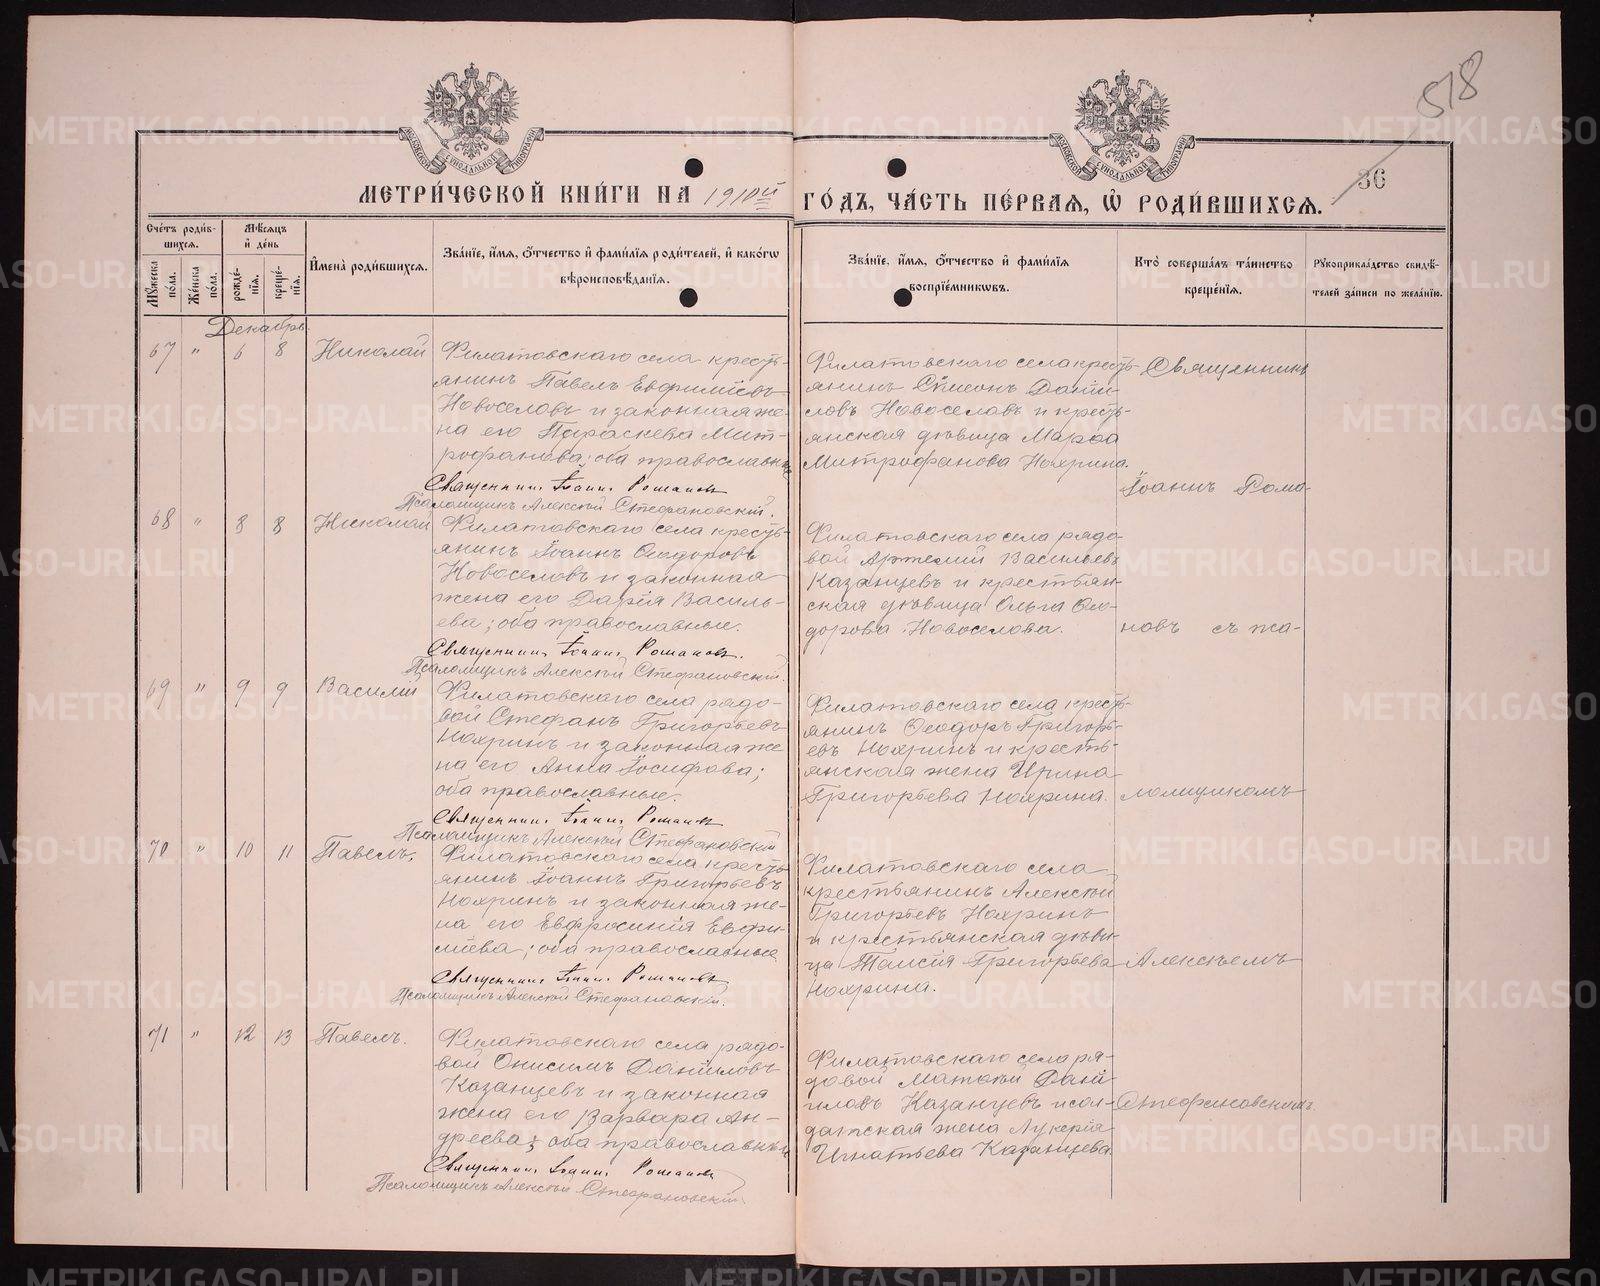 518
36
МОСКОВСКОЙ СѴНОДАЛЬНОЙ ТИПОГРАФІИ
МОСКОВСКОЙ СѴНОДАЛЬНОЙ ТИПОГРАФІИ
МЕТРИ́ЧЕСКОЙ КНИ́ГИ НА 1910й ГО́ДЪ, ЧА́СТЬ ПЕ́РВАЯ, Ѡ РОДИ́ВШИХСЯ.
Сче́тъ роди́в-
шихся.
Мѣ́сяцъ
и҆ де́нь
Мꙋ́жеска по́ла.
Же́нска по́ла.
рожде́-
нїя.
креще́-
нїя.
И҆мена̀ роди́вшихся.
Зва́нїе, и҆́мя, ѻ҆́тчество и҆ фамилїя роди́телей, и҆ како́гѡ
вѣроисповѣ́данїя.
Зва́нїе, и҆́мя, ѻ҆́тчество и҆ фами́лїя
воспрїе́мникѡвъ.
Кто̀ соверша́лъ та́инство
креще́нїя.
Рꙋкоприкла́дство свидѣ́-
телей за́писи по жела́нїю.
Декабрь.
67 " 6 8 Николай
Филатовскаго села кресть-
янинъ Павелъ Евфиміевъ
Новоселовъ и законная же-
на его Параскева Мит-
рофанова; оба православные
Священникъ Іоаннъ Романовъ
Псаломщикъ Алексѣй Стефановскій.
Филатовскаго села кресть-
янинъ Сѵмеонъ Дани-
ловъ Новоселовъ и кресть-
янская дѣвица Марѳа
Митрофанова Нохрина.
Священникъ
Іоаннъ Рома-
68 " 8 8 Николай
Филатовскаго села кресть-
янинъ Іоаннъ Ѳеодоровъ
Новоселовъ и законная
жена его Дарія Василь-
ева; оба православные.
Священникъ Іоаннъ Романовъ.
Псаломщикъ Алексѣй Стефановскій.
Филатовскаго села рядо-
вой Артемій Васильевъ
Казанцевъ и крестьян-
ская дѣвица Ольга Ѳео-
дорова Новоселова.
новъ съ пса-
69 " 9 9 Василій
Филатовскаго села рядо-
вой Стефанъ Григорьевъ
Нохринъ и законная же
на его Анна Іосифова;
оба православные.
Священникъ Іоаннъ Романовъ
Псаломщикъ Алексѣй Стефановскій
Филатовскаго села кресть-
янинъ Ѳеодоръ Григорь-
евъ Нохринъ и кресть-
янская жена Ирина
Григорьева Нохрина.
ломщикомъ
70 " 10 11 Павелъ.
Филатовскаго села кресть-
янинъ Іоаннъ Григорьевъ
Нохринъ и законная же-
на его Евфросинія Евфи-
міева; оба православные
Священникъ Іоаннъ Романовъ
Псаломщикъ Алексѣй Стефановскій.
Филатовскаго села
крестьянинъ Алексѣй
Григорьевъ Нохринъ
и крестьянская дѣви-
ца Таисія Григорьева
Нохрина.
Алексѣемъ
71 " 12 13 Павелъ.
Филатовскаго села рядо-
вой Онисимъ Даниловъ
Казанцевъ и законная
жена его Варвара Ан-
дреева; оба православные
Священникъ Іоаннъ Романовъ
Псаломщикъ Алексѣй Стефановскій.
Филатовскаго села ря-
довой Матѳей Дані-
иловъ Казанцевъ и сол-
датская жена Лукерія
Игнатьева Казанцева.
Стефановскимъ.
METRIKI.GASO-URAL.RU